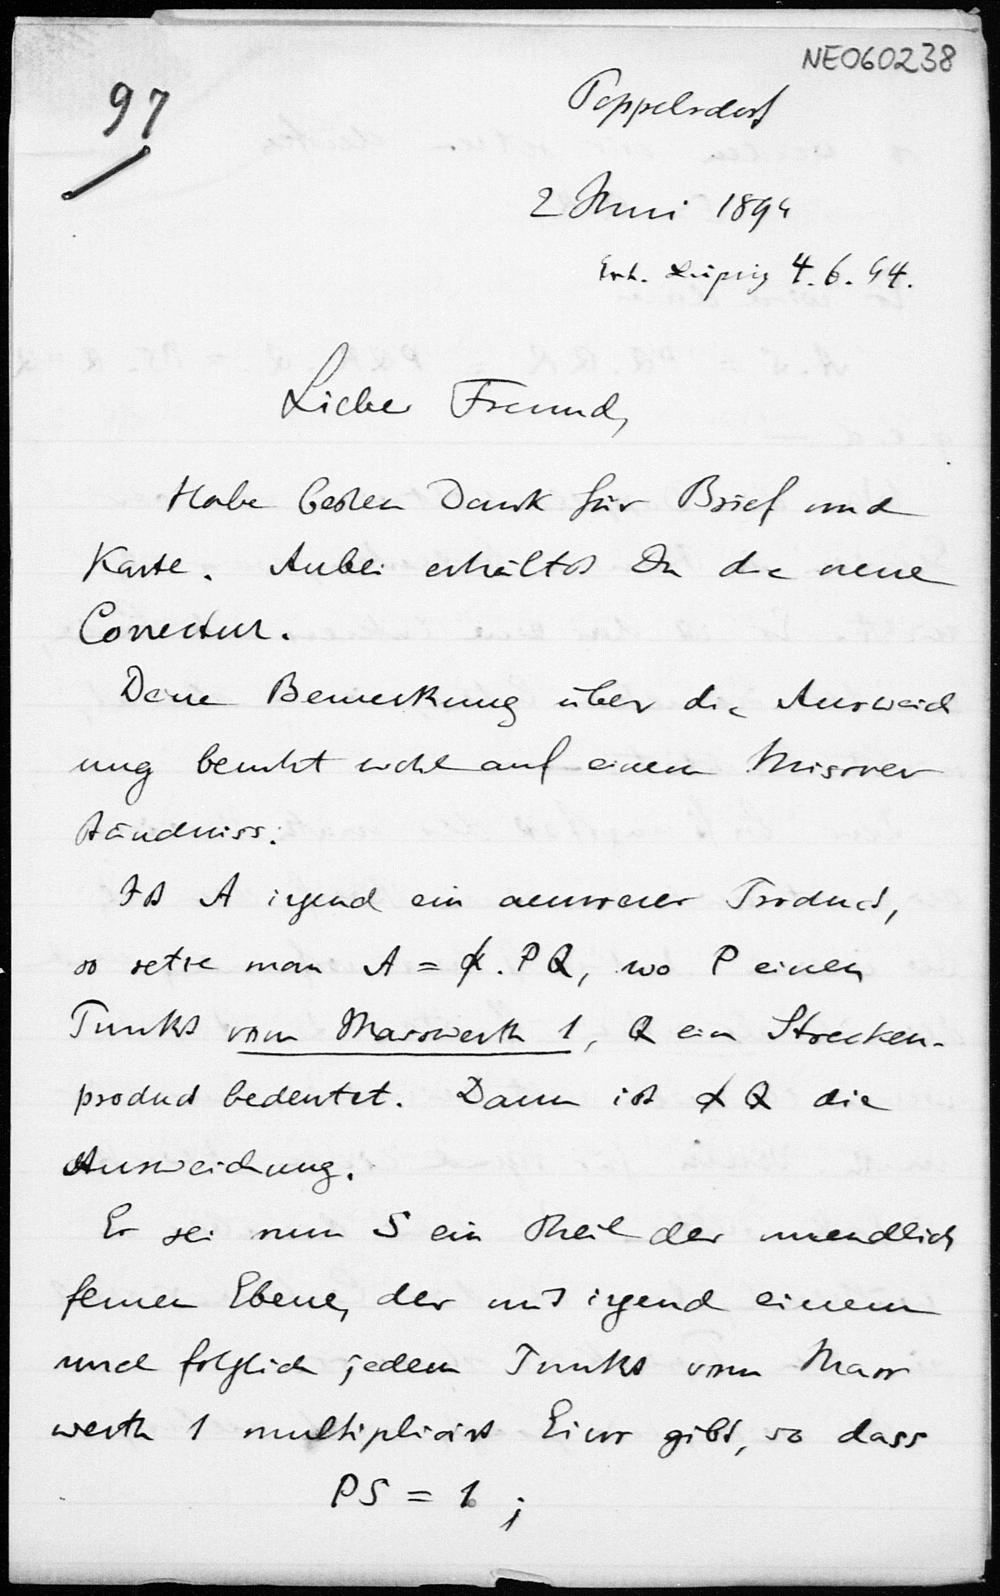 NE060238
97
Poppelsdorf
2 Juni 1894
Erh. Leipzig 4.6.94.
Lieber Freund,
Habe besten Dank für Brief und
Karte. Anbei erhältst Du die neue
Correctur.
Deine Bemerkung über die Ausweich
ung beruht wohl auf einem Missver
ständniss.
Ist A irgend ein äusseres Product,
so setze man A = α. PQ, wo P einen
Punkt vom Masswerth 1, Q ein Strecken-
product bedeutet. Dann ist α Q die
Ausweichung.
Es sei nun S ein Theil der unendlich
fernen Ebene, der mit irgend einem
und folglich jedem Punkt vom Mass
werth 1 multiplicirt Eins gibt, so dass
PS = 1 ;